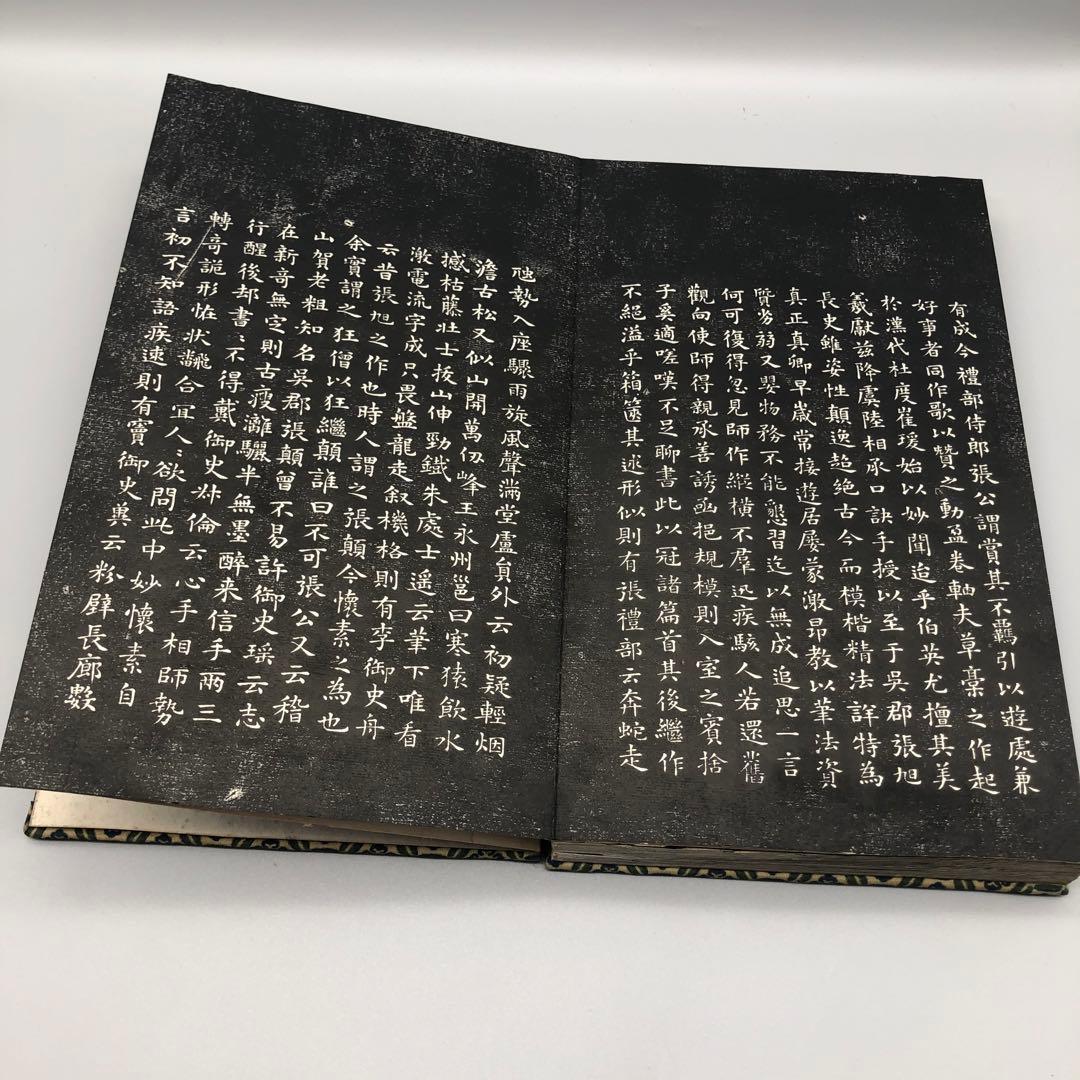 有成今禮部侍郎張公謂賞其不羈引以遊處兼
好事者同作歌以贊之動盈卷軸夫草稾之作起
於漢代杜度崔瑗始以妙聞迨乎伯英尤擅其美
羲獻茲降虞陸相承口訣手授以至于吳郡張旭
長史雖姿性顛逸超絕古今而模楷精法詳特為
真正真卿早歲常接遊居屢蒙激昂教以筆法資
質劣弱又嬰物務不能懇習迄以無成追思一言
何可復得忽見師作縱橫不羣迅疾駭人若還舊
觀向使師得親承善誘函挹規模則入室之賓捨
子奚適嗟嘆不足聊書此以冠諸篇首其後繼作
不絕溢乎箱篋其述形似則有張禮部云奔蛇走
虺勢入座驟雨旋風聲滿堂盧員外云初疑輕烟
澹古松又似山開萬仞峰王永州邕曰寒猿飲水
撼枯藤壯士拔山伸勁鐵朱處士遥云筆下唯看
激電流字成只畏盤龍走叙機格則有李御史舟
云昔張旭之作也時人謂之張顛今懷素之為也
余實謂之狂僧以狂繼顛誰曰不可張公又云稽
山賀老粗知名吳郡張顛曾不易許御史瑶云志
在新奇無定則古瘦漓驪半無墨醉来信手兩三
行醒後却書〻不得戴御史叔倫云心手相師勢
轉奇詭形恠狀飜合冝人〻欲問此中妙懷素自
言初不知語疾速則有竇御史兾云粉壁長廊數